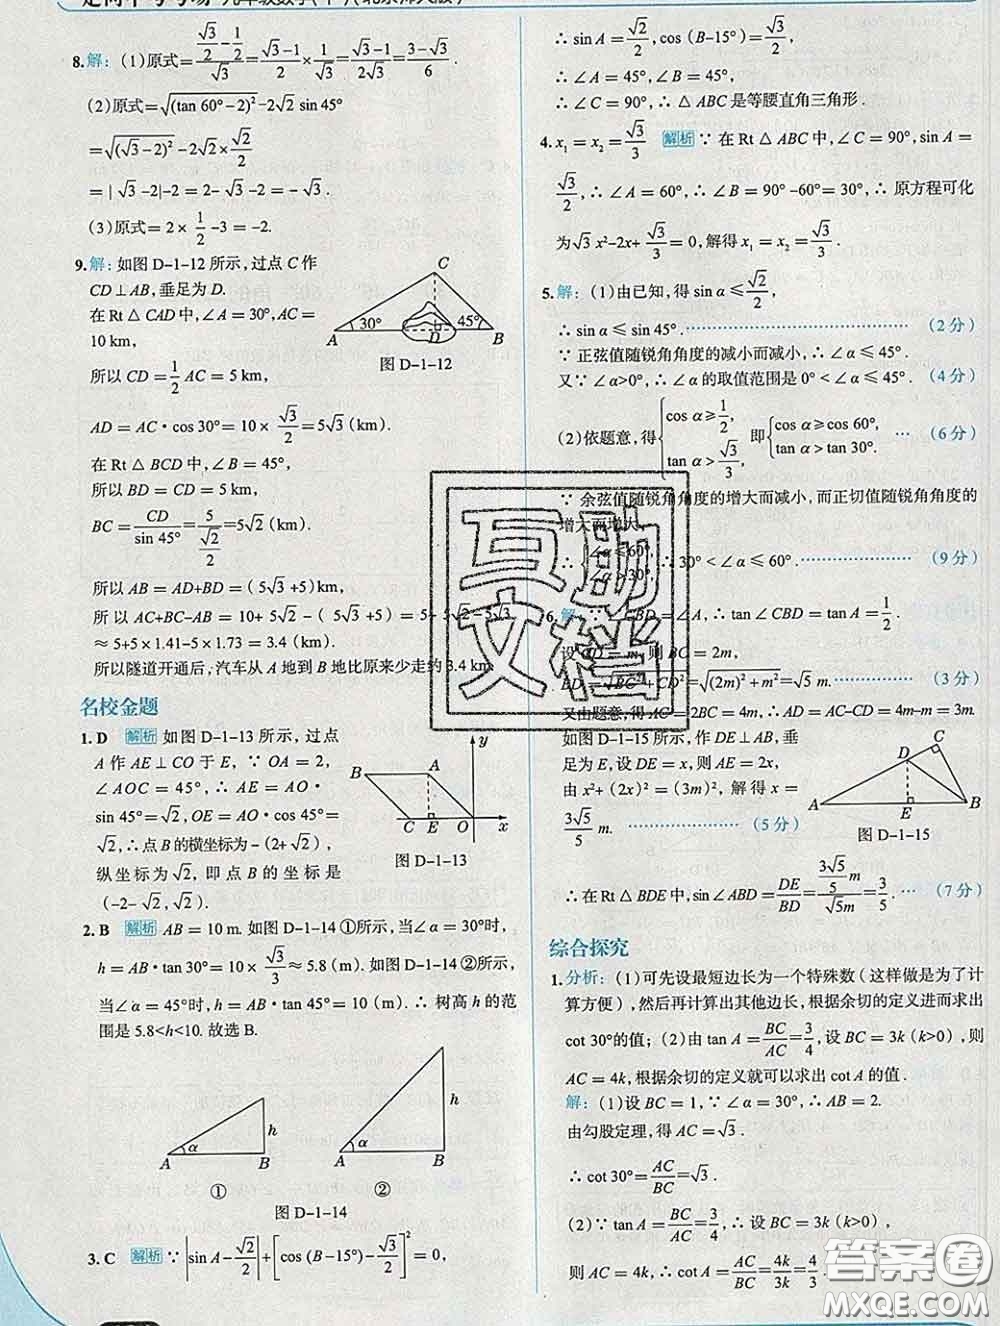 8.解：(1)原式=(√3/2-1/2)/√3=(√3-1)/2×1/√3=(√3-1)/(2√3)=(3-√3)/6.
(2)原式=√((tan 60°-2)²)-2√2 sin 45°
=√((√3-2)²)-2√2×√2/2
=|√3-2|-2=2-√3-2=-√3.
(3)原式=2×1/2-3=-2.
9.解：如图D-1-12所示，过点C作
CD⊥AB，垂足为D.
在Rt△CAD中，∠A=30°，AC=
10 km，
所以CD=1/2 AC=5 km，
C
A 30° D 45° B
图D-1-12
AD=AC·cos 30°=10×√3/2=5√3(km).
在Rt△BCD中，∠B=45°，
所以BD=CD=5 km，
BC=CD/sin 45°=5/(√2/2)=5√2(km).
所以AB=AD+BD=(5√3+5)km，
所以AC+BC-AB=10+5√2-(5√3+5)=5+5√2-5√3
≈5+5×1.41-5×1.73=3.4(km).
所以隧道开通后，汽车从A地到B地比原来少走约3.4 km.
名校金题
1.D 解析 如图D-1-13所示，过点
A作AE⊥CO于E，∵OA=2，
∠AOC=45°，∴AE=AO·
sin 45°=√2，OE=AO·cos 45°=
√2，∴点B的横坐标为-(2+√2)，
纵坐标为√2，即点B的坐标是
(-2-√2,√2).
y
B A
C E O x
图D-1-13
2.B 解析 AB=10 m.如图D-1-14①所示，当∠α=30°时，
h=AB·tan 30°=10×√3/3≈5.8(m).如图D-1-14②所示，
当∠α=45°时，h=AB·tan 45°=10(m).∴树高h的范
围是5.8<h<10.故选B.
A α B h
①
A α B h
②
图D-1-14
3.C 解析 ∵|sin A-√2/2|+[cos(B-15°)-√3/2]²=0，
∴sin A=√2/2，cos(B-15°)=√3/2，
∴∠A=45°，∠B=45°，
∴∠C=90°，∴△ABC是等腰直角三角形.
4.x₁=x₂=√3/3 解析 ∵在Rt△ABC中，∠C=90°，sin A=
√3/2，∴∠A=60°，∴∠B=90°-60°=30°，∴原方程可化
为√3 x²-2x+√3/3=0，解得x₁=x₂=√3/3.
5.解：(1)由已知，得sin α≤√2/2，
∴sin α≤sin 45°.……(2分)
∵正弦值随锐角角度的减小而减小，∴∠α≤45°.
又∵∠α>0°，∴∠α的取值范围是0°<∠α≤45°.(4分)
(2)依题意，得{cos α≥1/2，tan α>√3/3，即{cos α≥cos 60°，tan α>tan 30°.…(6分)
∵余弦值随锐角角度的增大而减小，而正切值随锐角角度的
增大而增大，
∴{∠α≤60°，∠α>30°.∴30°<∠α≤60°.……(9分)
6.解：∵∠CBD=∠A，∴tan∠CBD=tan A=1/2.
设CD=m，则BC=2m，
BD=√(BC²+CD²)=√((2m)²+m²)=√5 m.……(3分)
又由题意，得AC=2BC=4m，∴AD=AC-CD=4m-m=3m.
如图D-1-15所示，作DE⊥AB，垂
足为E，设DE=x，则AE=2x，
由x²+(2x)²=(3m)²，解得x=
3√5/5 m.……(5分)
C
D
A E B
图D-1-15
∴在Rt△BDE中，sin∠ABD=DE/BD=(3√5/5 m)/(√5m)=3/5.…(7分)
综合探究
1.分析：(1)可先设最短边长为一个特殊数(这样做是为了计
算方便)，然后再计算出其他边长，根据余切的定义进而求出
cot 30°的值；(2)由tan A=BC/AC=3/4，设BC=3k(k>0)，则
AC=4k，根据余切的定义就可以求出cot A的值.
解：(1)设BC=1，∵∠α=30°，∴AB=2.
由勾股定理，得AC=√3.
∴cot 30°=AC/BC=√3.
(2)∵tan A=BC/AC=3/4，∴设BC=3k(k>0)，
则AC=4k，∴cot A=AC/BC=4k/3k=4/3.
互助
文档
答案圈
MXQE.COM